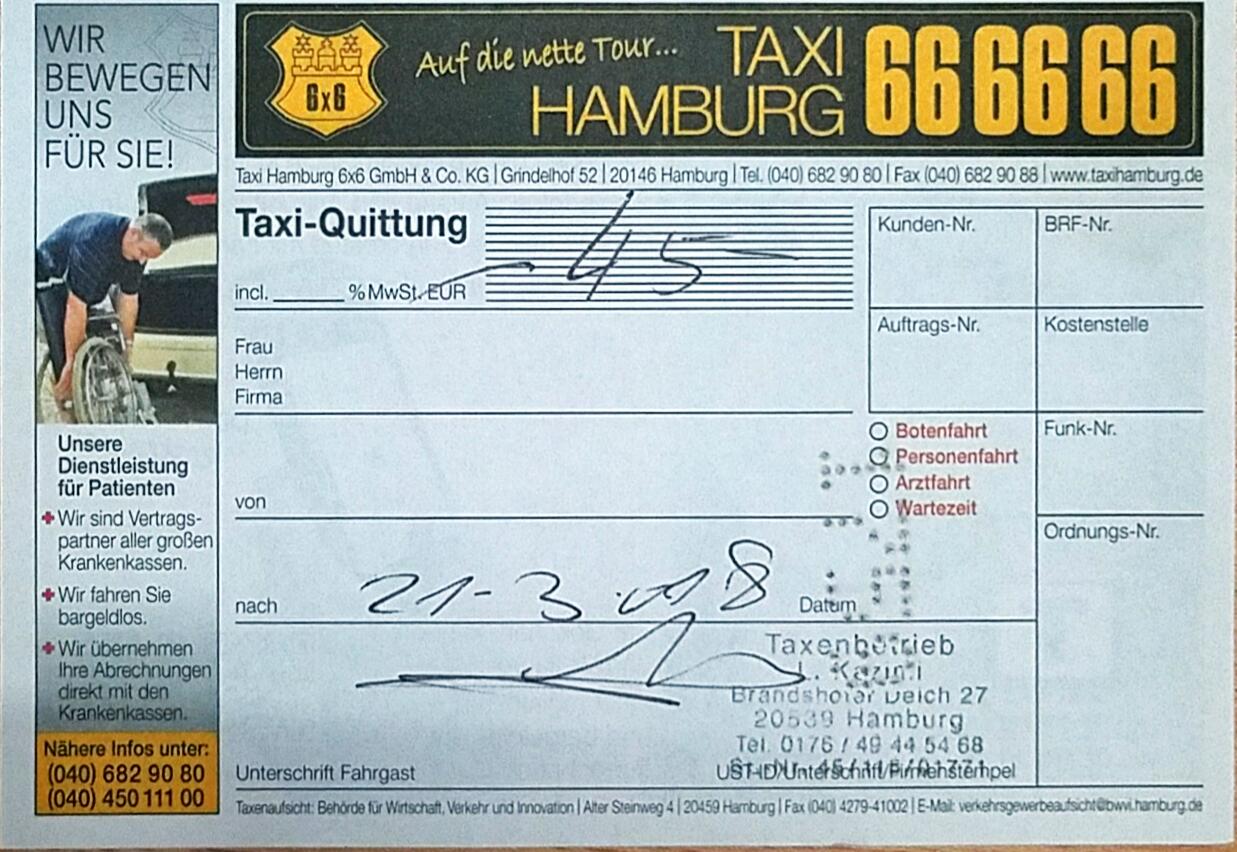 WIR
BEWEGEN
UNS
FÜR SIE!
Unsere
Dienstleistung
für Patienten
+ Wir sind Vertrags-
partner aller großen
Krankenkassen.
+ Wir fahren Sie
bargeldlos.
+ Wir übernehmen
Ihre Abrechnungen
direkt mit den
Krankenkassen.
Nähere Infos unter:
(040) 682 90 80
(040) 450 111 00
6x6
Auf die nette Tour...
TAXI
HAMBURG
66 66 66
Taxi Hamburg 6x6 GmbH & Co. KG | Grindelhof 52 | 20146 Hamburg | Tel. (040) 682 90 80 | Fax (040) 682 90 88 | www.taxihamburg.de
Taxi-Quittung
incl. ______ % MwSt. EUR
- 45 -
Kunden-Nr.
BRF-Nr.
Auftrags-Nr.
Kostenstelle
Frau
Herrn
Firma
Botenfahrt
Personenfahrt
Arztfahrt
Wartezeit
Funk-Nr.
Ordnungs-Nr.
von
nach
21-3.018
Datum
Taxenbetrieb
Brandshofer Deich 27
20539 Hamburg
Tel. 0176 / 49 44 54 68
Unterschrift Fahrgast
UST-ID/Unterschrift/Firmenstempel
Taxenaufsicht: Behörde für Wirtschaft, Verkehr und Innovation | Alter Steinweg 4 | 20459 Hamburg | Fax (040) 4279-41002 | E-Mail: verkehrsgewerbeaufsicht@bwvi.hamburg.de